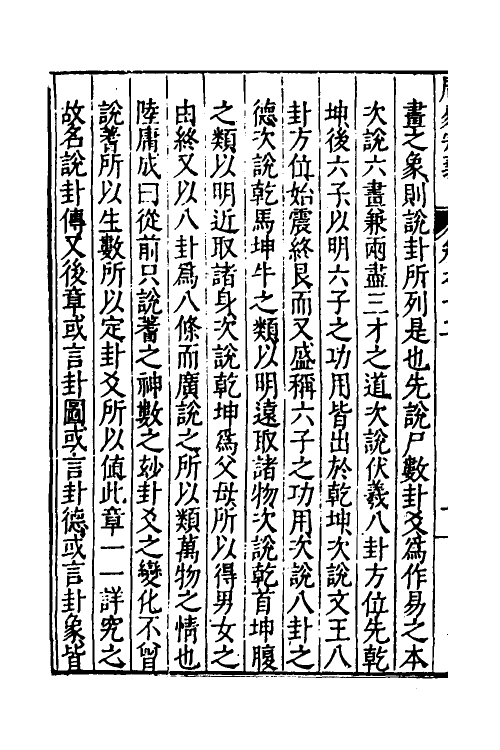 畫之象則說卦所列是也先說尸數卦爻爲作易之本
次說六畫兼兩盡三才之道次說伏羲八卦方位先乾
坤後六子以明六子之功用皆出於乾坤次說文王八
卦方位始震終艮而又盛稱六子之功用次說八卦之
德次說乾馬坤牛之類以明遠取諸物次說乾首坤腹
之類以明近取諸身次說乾坤爲父母所以得男女之
由終又以八卦爲八條而廣說之所以類萬物之情也
陸庸成曰從前只說蓍之神數之妙卦爻之變化不曾
說蓍所以生數所以定卦爻所以値此章一一詳究之
故名說卦傳又後章或言卦圖或言卦德或言卦象皆